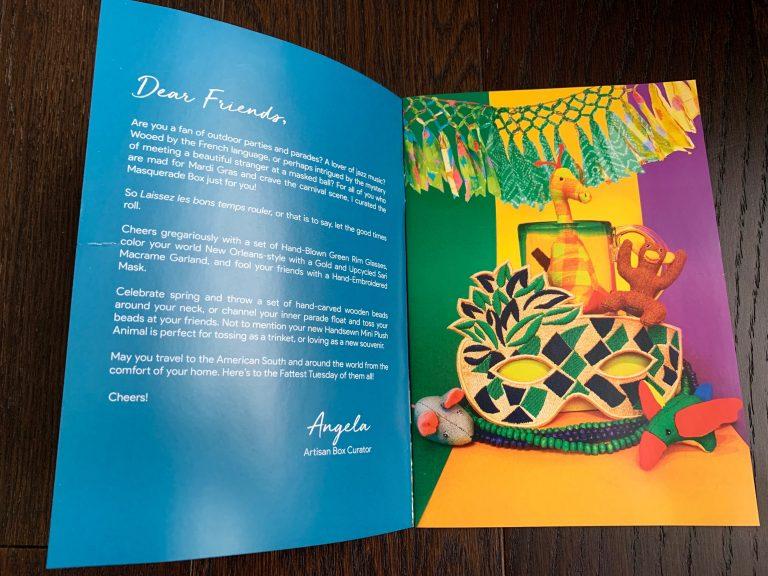 Dear Friends,
Are you a fan of outdoor parties and parades? A lover of jazz music?
Wooed by the French language, or perhaps intrigued by the mystery
of meeting a beautiful stranger at a masked ball? For all of you who
are mad for Mardi Gras and crave the carnival scene, I curated the
Masquerade Box just for you!
So Laissez les bons temps rouler, or that is to say, let the good times
roll.
Cheers gregariously with a set of Hand-Blown Green Rim Glasses,
color your world New Orleans-style with a Gold and Upcycled Sari
Macrame Garland, and fool your friends with a Hand-Embroidered
Mask.
Celebrate spring and throw a set of hand-carved wooden beads
around your neck, or channel your inner parade float and toss your
beads at your friends. Not to mention your new Handsewn Mini Plush
Animal is perfect for tossing as a trinket, or loving as a new souvenir.
May you travel to the American South and around the world from the
comfort of your home. Here's to the Fattest Tuesday of them all!
Cheers!
Angela
Artisan Box Curator